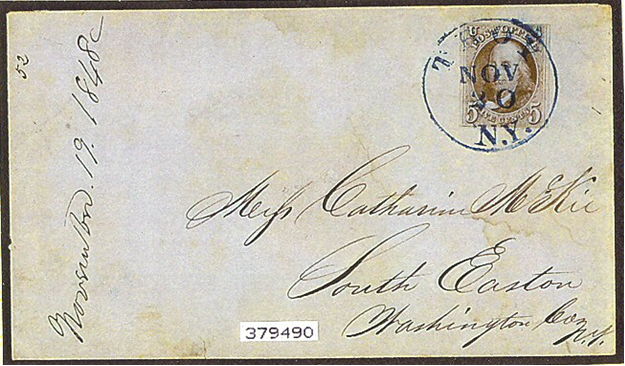 52
November. 19. 1848
NOV
20
N.Y.
POST OFFICE
5 FIVE CENTS 5
Miss Catharine McKie
South Easton
Washington Co
N.Y.
379490